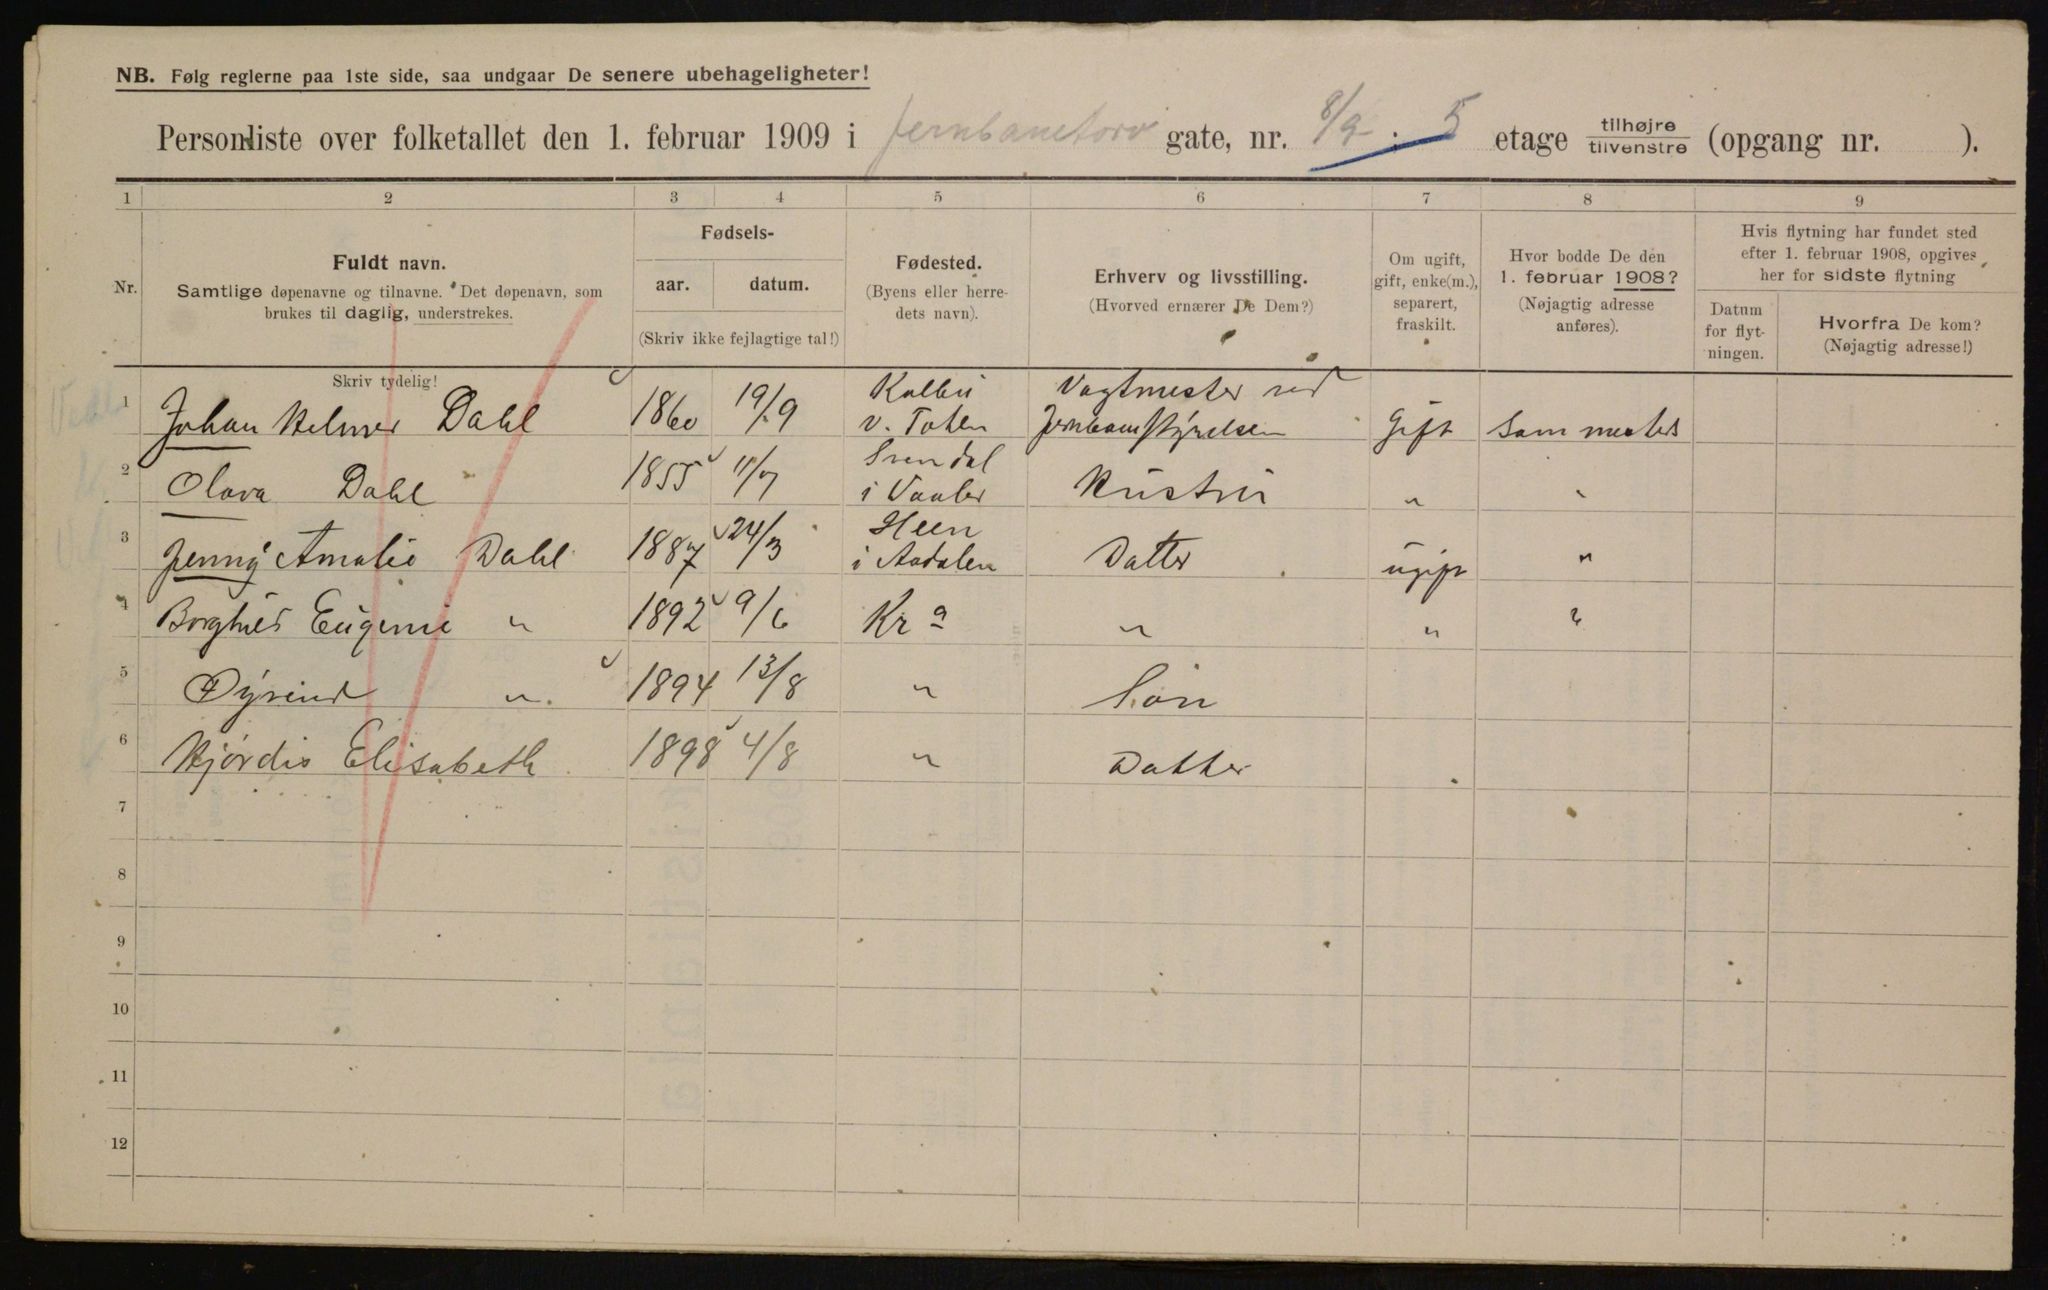 NB. Følg reglerne paa 1ste side, saa undgaar De senere ubehageligheter!
Personliste over folketallet den 1. februar 1909 i Jernbanetorv gate, nr. 8/9 : 5 etage tilhøjre/tilvenstre (opgang nr. ).
1 2 3 4 5 6 7 8 9
Nr.
Fuldt navn.
Samtlige døpenavne og tilnavne. Det døpenavn, som
brukes til daglig, understrekes.
Skriv tydelig!
Fødsels-
aar. datum.
(Skriv ikke fejlagtige tal!)
Fødested.
(Byens eller herre-
dets navn).
Erhverv og livsstilling.
(Hvorved ernærer De Dem?)
Om ugift,
gift, enke(m.),
separert,
fraskilt.
Hvor bodde De den
1. februar 1908?
(Nøjagtig adresse
anføres).
Hvis flytning har fundet sted
efter 1. februar 1908, opgives
her for sidste flytning
Datum
for flyt-
ningen.
Hvorfra De kom?
(Nøjagtig adresse!)
1 Johan Helmer Dahl 1860 19/9 Kolbu v. Toten Vagtmester ved Jernbanestyrelsen Gift Sammesteds
2 Olava Dahl 1855 11/7 i Vaaler Hustru " "
3 Jenny Amalie Dahl 1887 24/3 Heen i Aadalen Datter ugift "
4 Borghild Eugenie " 1892 9/6 Kra " " "
5 Øyvind " 1894 13/8 " Søn
6 Hjørdis Elisabeth 1898 4/8 " Datter
7
8
9
10
11
12